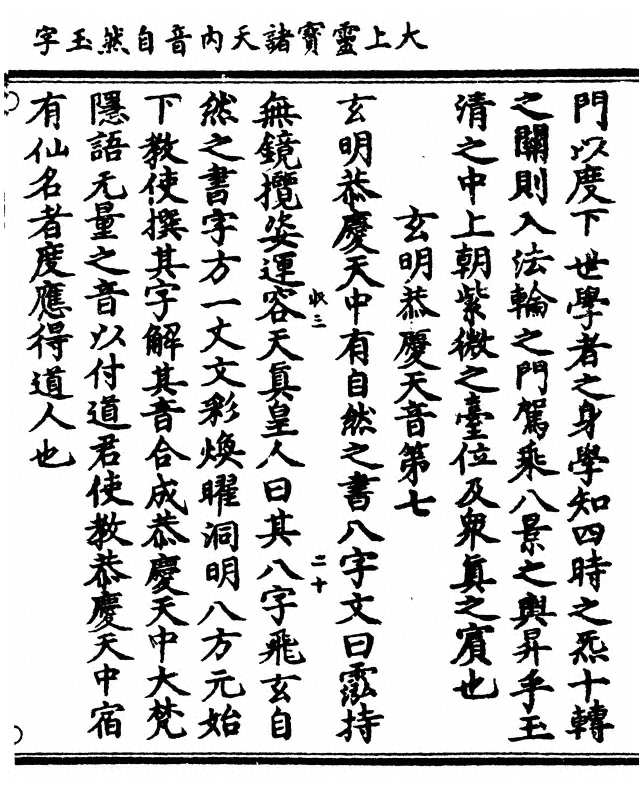 大上靈寶諸天內音自然玉字
門以度下世學者之身學知四時之炁十轉
之關則入法輪之門駕乘八景之輿昇乎玉
清之中上朝紫微之臺位及衆眞之賓也
玄明恭慶天音第七
玄明恭慶天中有自然之書八字文曰霐持
無鏡攬姿運容天眞皇人曰其八字飛玄自
收三
二十
然之書字方一丈文彩煥曜洞明八方元始
下教使撰其字解其音合成恭慶天中大梵
隱語无量之音以付道君使教恭慶天中宿
有仙名者度應得道人也